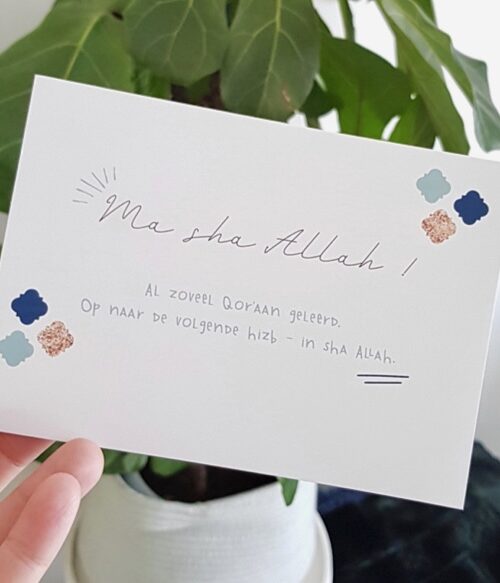 Ma sha Allah !
Al zoveel Qor'aan geleerd.
Op naar de volgende hizb - in sha Allah.